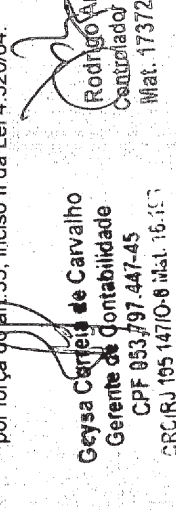 por força do art.35, inciso II da Lei 4.320/64.
Geysa Correia de Carvalho
Gerente de Contabilidade
CPF 953.797.447-45
CRC/RJ 105 147/O-8 Mat. 16.
Rodrigo
Controlador
Mat. 17372